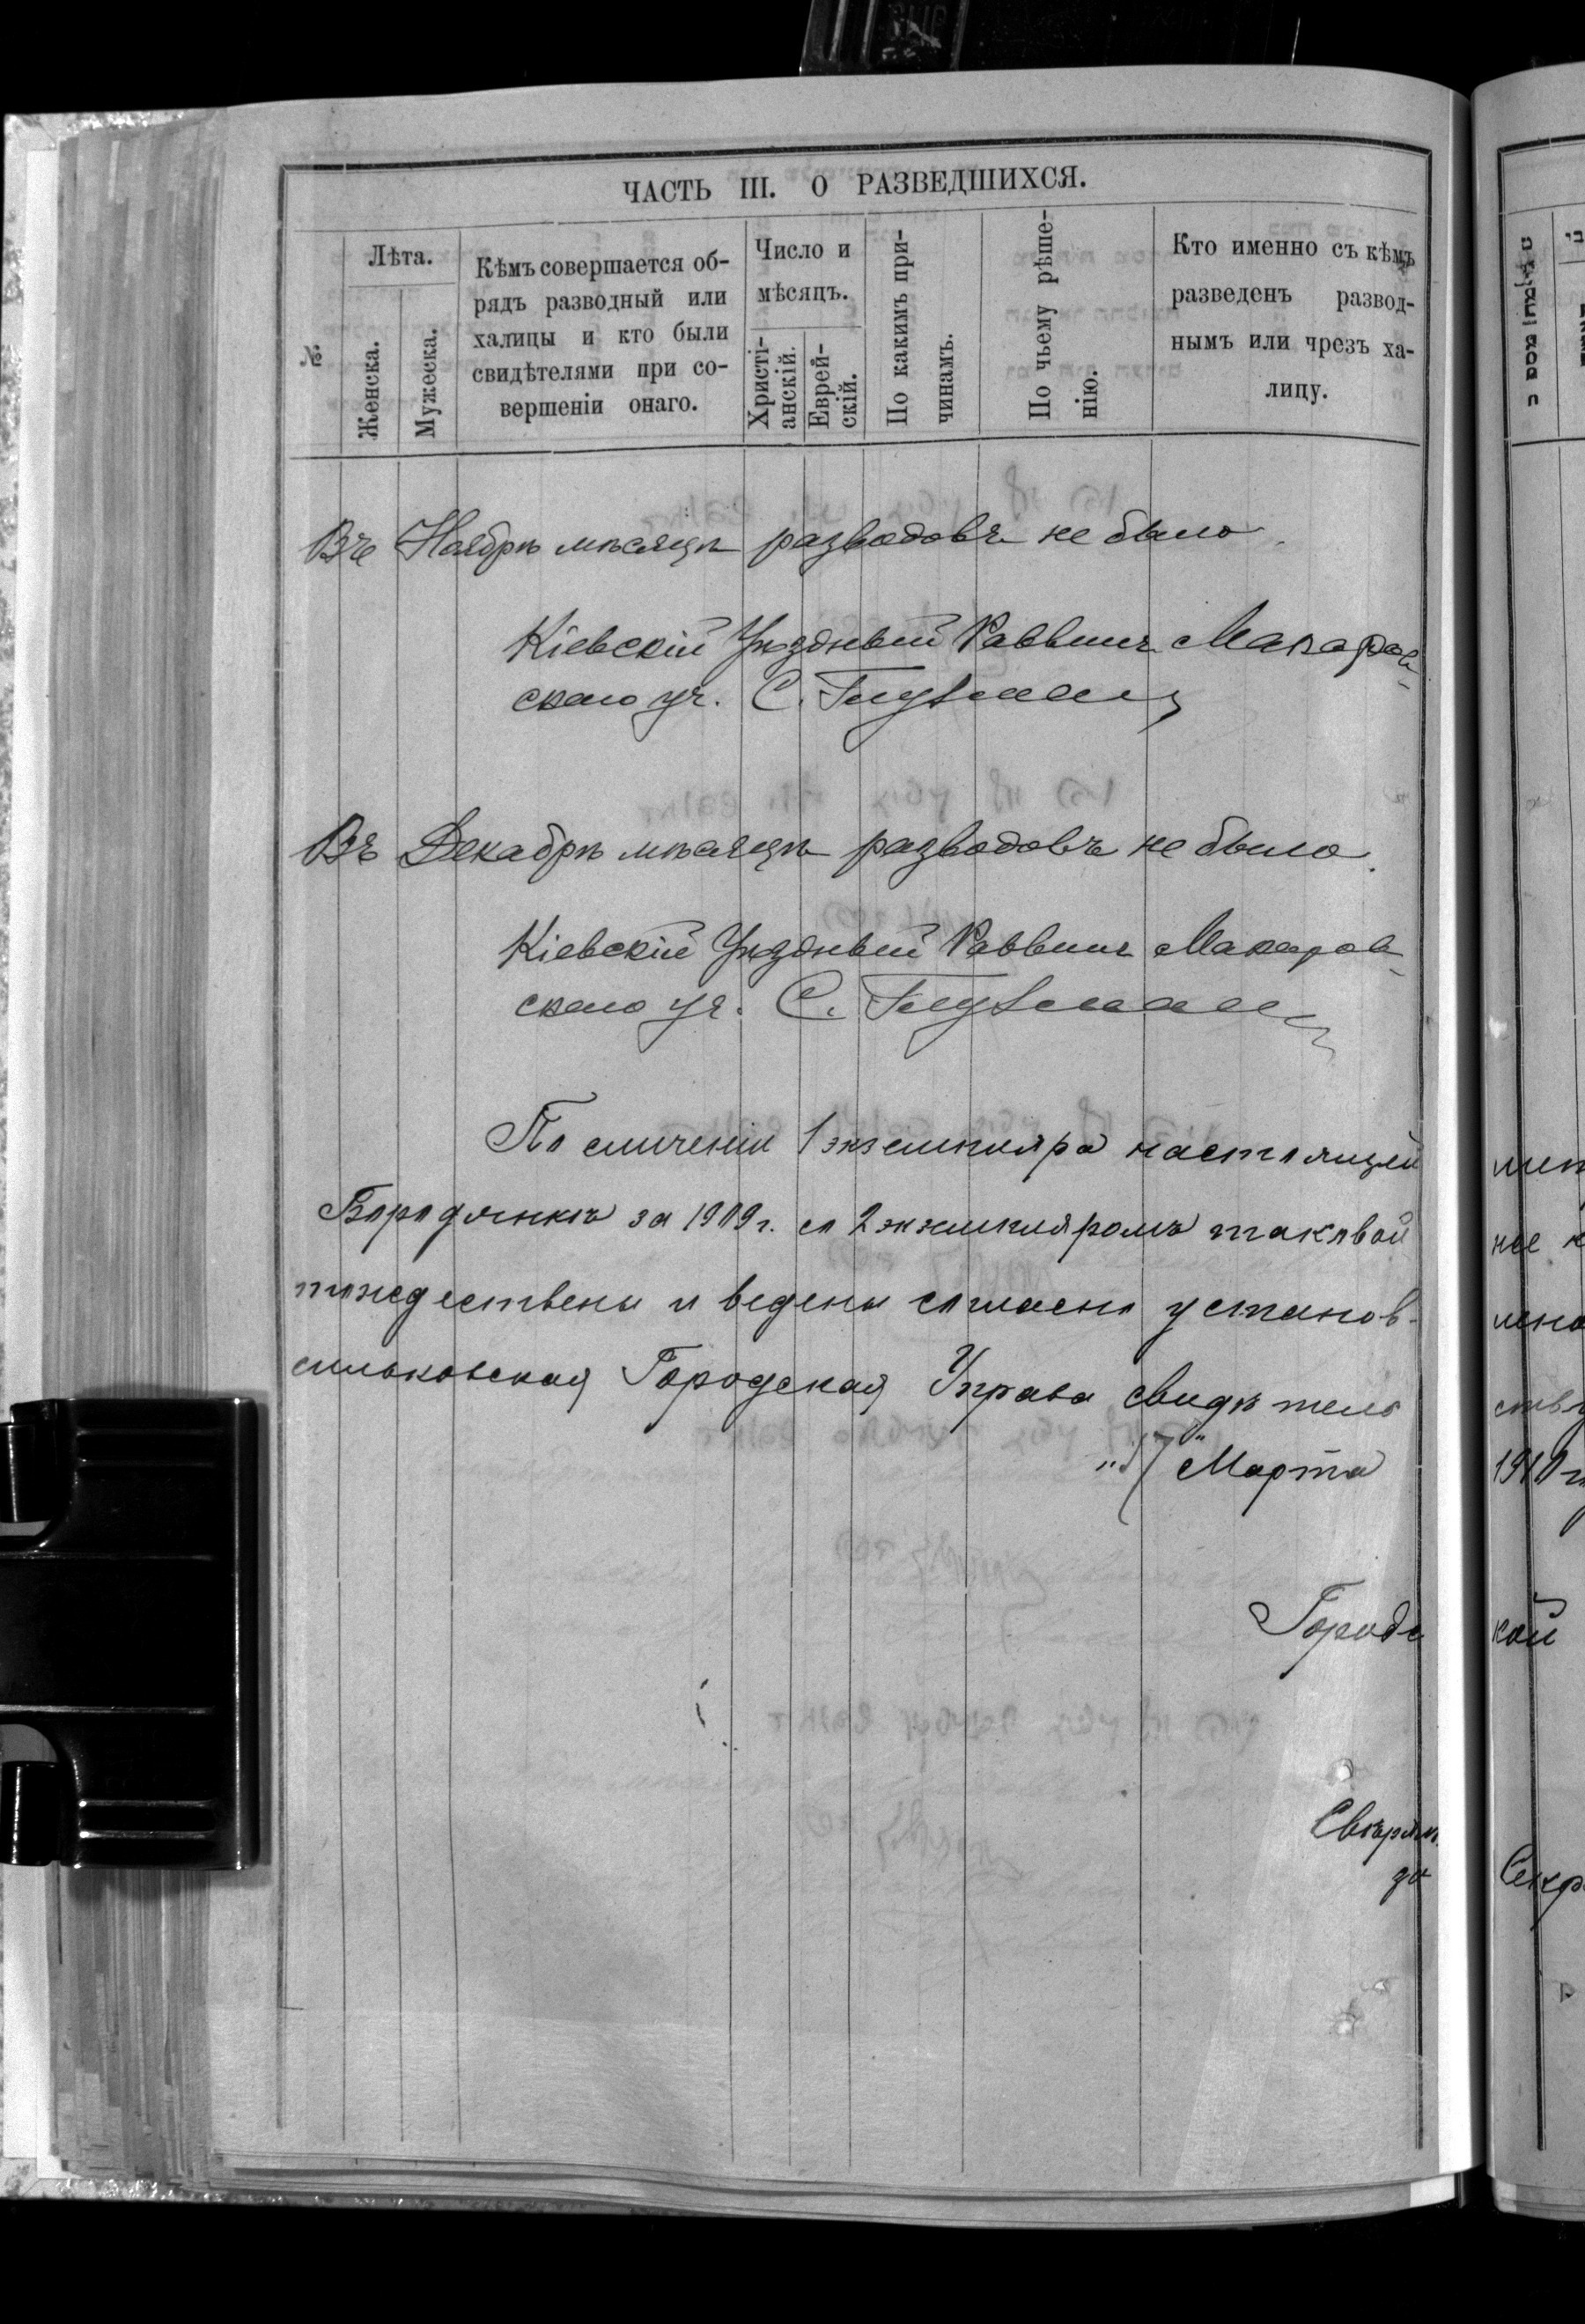 ЧАСТЬ III. О РАЗВЕДШИХСЯ.
№
Лѣта.
Женска.
Мужеска.
Кѣмъ совершается об-
рядъ разводный или
халицы и кто были
свидѣтелями при со-
вершеніи онаго.
Число и
мѣсяцъ.
Христі-
анскій.
Еврей-
скій.
По какимъ при-
чинамъ.
По чьему рѣше-
нію.
Кто именно съ кѣмъ
разведенъ развод-
нымъ или чрезъ ха-
лицу.
Въ Ноябрѣ мѣсяцѣ разводовъ не было.
Кіевскій Уѣздный Раввинъ Макаров-
скаго уч.
Въ Декабрѣ мѣсяцѣ разводовъ не было.
Кіевскій Уѣздный Раввинъ Макаров-
скаго уч.
По сличеніи 1 экземпляра настоящей
Бородянкѣ за 1909 г. со 2 экземпляромъ таковой
тождественны и ведены согласно установ-
сильковская Городская Управа свидѣтель
"17" Марта
Городс
Свѣрял
1910 г
кой
Секр